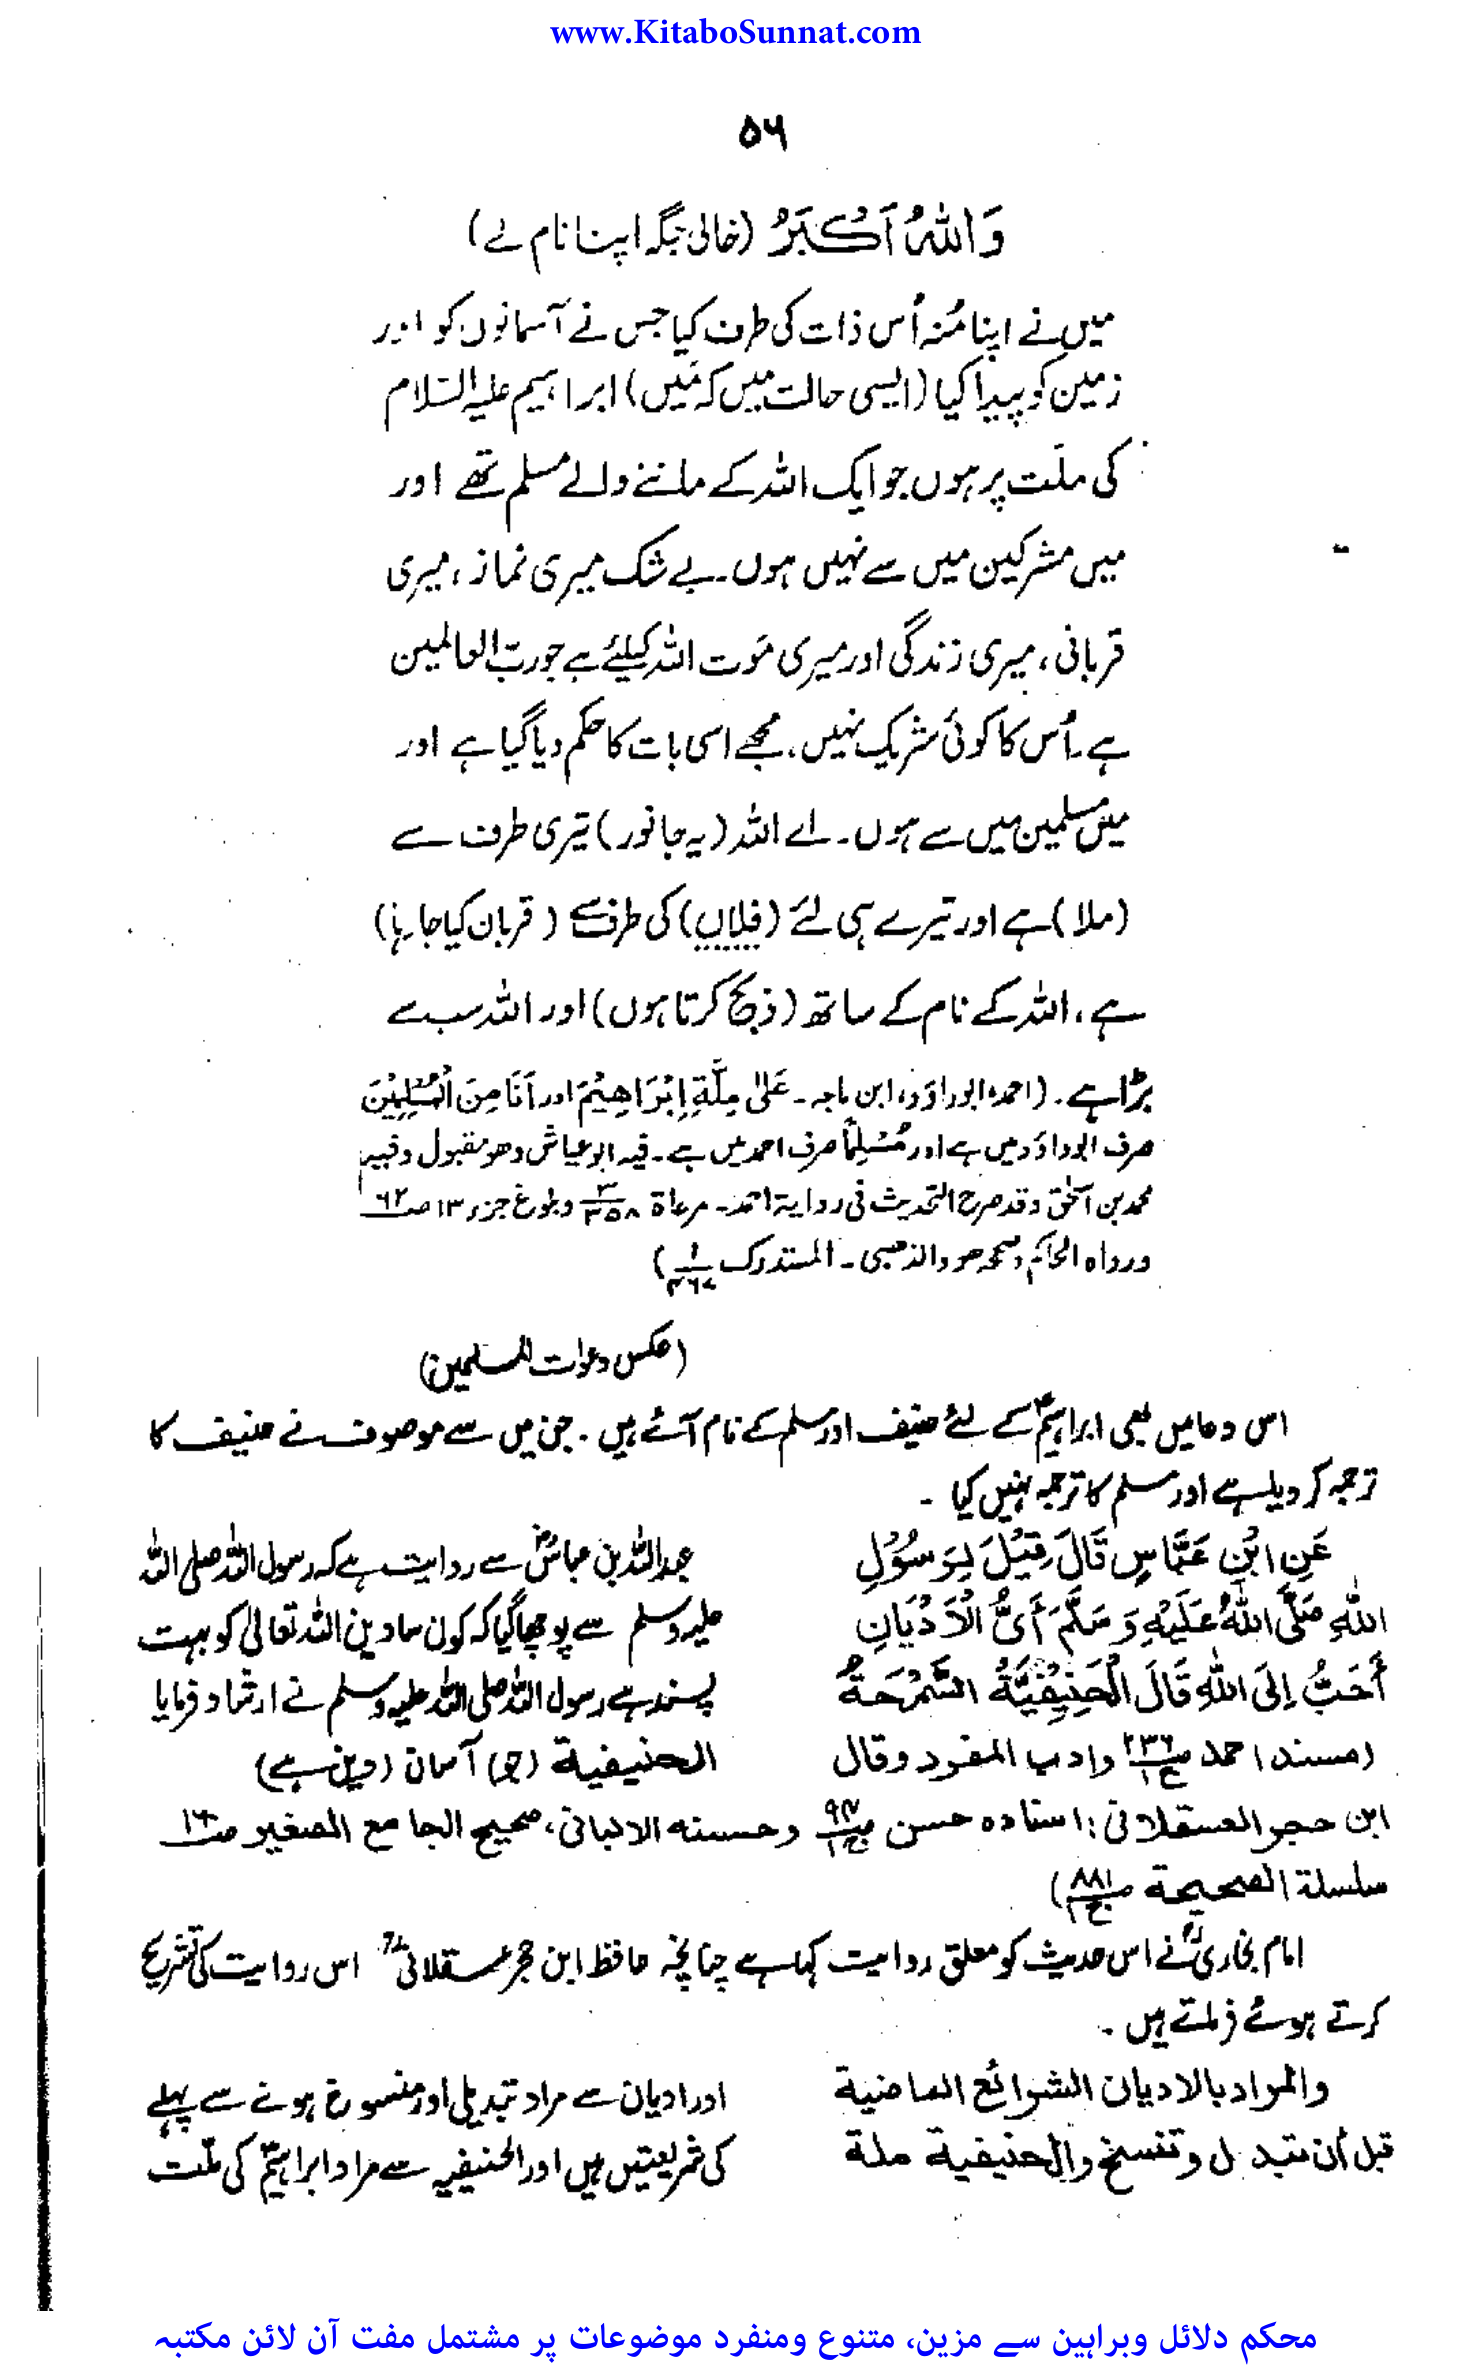 www.KitaboSunnat.com
۵۶
وَاللّٰہُ اَکْبَرُ (خالی جگہ اپنا نام لے)
میں نے اپنا مُنہ اُس ذات کی طرف کیا جس نے آسمانوں کو اور
زمین کو پیدا کیا (ایسی حالت میں کہ مَیں) ابراہیم علیہ السّلام
کی ملّت پر ہوں جو ایک اللہ کے ماننے والے مسلم تھے اور
میں مشرکین میں سے نہیں ہوں۔ بے شک میری نماز، میری
قربانی، میری زندگی اور میری مَوت اللہ کیلئے ہے جو ربّ العالمین
ہے۔ اُس کا کوئی شریک نہیں، مجھے اسی بات کا حکم دیا گیا ہے اور
میں مسلمین میں سے ہوں۔ اے اللہ (یہ جانور) تیری طرف سے
(ملا) ہے اور تیرے ہی لئے (فلاں) کی طرف سے (قربان کیا جا رہا)
ہے، اللہ کے نام کے ساتھ (ذبح کرتا ہوں) اور اللہ سب سے
بڑا ہے۔ (احمد، ابوداؤد، ابن ماجہ۔ عَلیٰ مِلَّةِ اِبْرَاهِیْمَ اور اَنَا مِنَ الْمُسْلِمِیْنَ
صرف ابوداؤد میں ہے اور مُسْلِمًا صرف احمد میں ہے۔ فیہ ابو عیاش وھو مقبول وفیہ
محمد بن اسحٰق وقد صرح التحدیث فی روایۃ احمد۔ مرعاۃ ۳/۳۵۸ وبلوغ جزء ۱۳ صـ ۶۲
ورواہ الحاکم وصححہ ھو والذھبی۔ المستدرک ۱/۴۶۷)
(عکس دعوات المسلمین)
اس دعا میں بھی ابراہیمؑ کے لئے حنیف اور مسلم کے نام آئے ہیں۔ جن میں سے موصوف نے حنیف کا
ترجمہ کر دیا ہے اور مسلم کا ترجمہ نہیں کیا۔
عَنِ ابْنِ عَبَّاسٍ قَالَ قِیْلَ لِرَسُوْلِ
اللهِ صَلَّى اللهُ عَلَیْهِ وَسَلَّمَ أَیُّ الْاَدْیَانِ
أَحَبُّ إِلَى اللهِ قَالَ الْحَنِیْفِیَّةُ السَّمْحَةُ
(مسند احمد صـ ۲۳۶ ج ۱ وادب المفرد وقال
عبداللہ بن عباسؓ سے روایت ہے کہ رسول اللہ صلی اللہ
علیہ وسلم سے پوچھا گیا کہ کون سا دین اللہ تعالیٰ کو بہت
پسند ہے رسول اللہ صلی اللہ علیہ وسلم نے ارشاد فرمایا
الحنیفیة (جو) آسان (دین ہے)
ابن حجر العسقلانی: اسناده حسن صـ ۹۴ ج ۱ وحسنه الالبانی، صحیح الجامع الصغیر صـ ۱۶
سلسلة الصحیحة صـ ۸۸۱ ج)
امام بخاریؒ نے اس حدیث کو معلق روایت کیا ہے چنانچہ حافظ ابن حجر عسقلانیؒ اس روایت کی تشریح
کرتے ہوئے فرماتے ہیں۔
والمراد بالادیان الشرائع الماضیة
قبل أن تبدل وتنسخ والحنیفیة ملة
اور ادیان سے مراد تبدیلی اور منسوخ ہونے سے پہلے
کی شریعتیں ہیں اور الحنیفیہ سے مراد ابراہیمؑ کی ملّت
محکم دلائل وبراہین سے مزین، متنوع ومنفرد موضوعات پر مشتمل مفت آن لائن مکتبہ